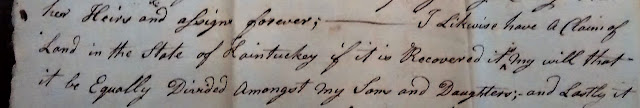 her Heirs and assigns forever; —— I Likewise have A Claim of
Land in the State of Kaintuckey if it is Recovered it is my will that
it be Equally Divided Amongst my Sons and Daughters;- and Lastly it